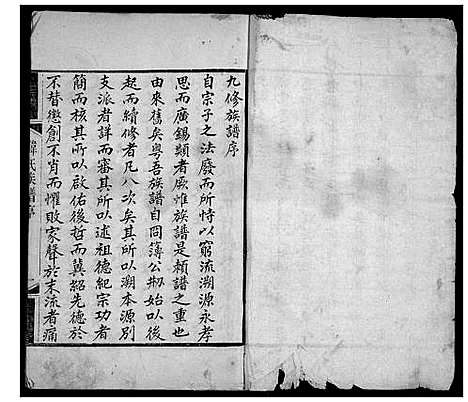 九修族譜序
自宗子之法廢而所恃以窮流溯源永孝
思而廣錫類者厥惟族譜是賴譜之重也
由來舊矣粵吾族譜自同簿公剏始以後
起而續修者凡八次矣其所以溯本源別
支派者詳而審其所以述祖德紀宗功者
簡而核其所以啟佑後哲而冀紹先德於
不替懲創不肖而懼敗家聲於末流者痛
氏族譜序